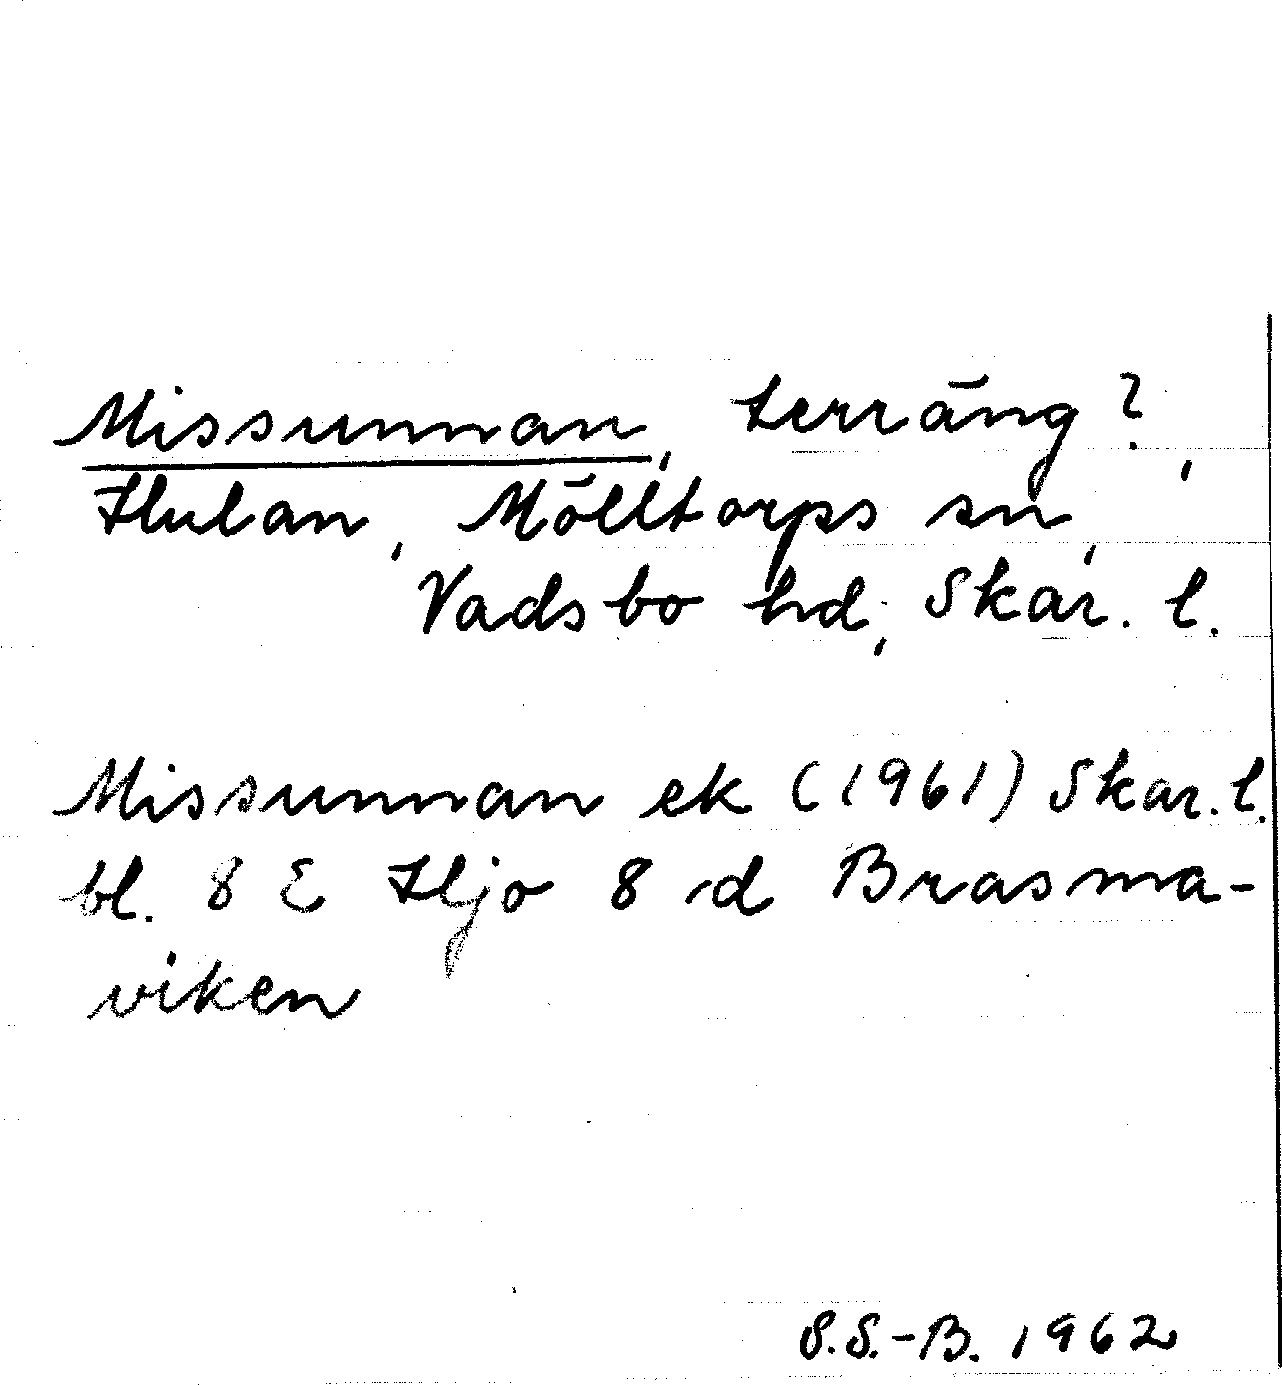 Missunnan, terräng?,
Hulan, Mölltorps sn,
Vadsbo hd, Skar. l.
Missunnan ek (1961) Skar. l.
bl. 8 E Hjo 8 d Brasma-
viken
S.S.-B. 1962